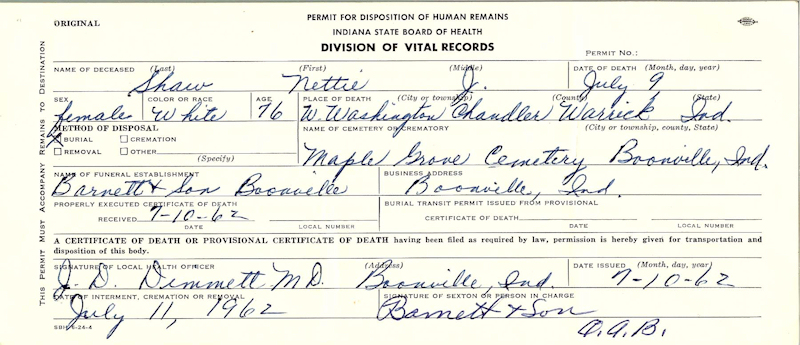 ORIGINAL
PERMIT FOR DISPOSITION OF HUMAN REMAINS
INDIANA STATE BOARD OF HEALTH
DIVISION OF VITAL RECORDS
PERMIT NO.:
THIS PERMIT MUST ACCOMPANY REMAINS TO DESTINATION
NAME OF DECEASED (Last) (First) (Middle) DATE OF DEATH (Month, day, year)
Shaw Nettie J. July 9
SEX COLOR OR RACE AGE PLACE OF DEATH (City or township) (County) (State)
female White 76 W. Washington Chandler Warrick Ind.
METHOD OF DISPOSAL NAME OF CEMETERY OR CREMATORY (City or township, county, State)
BURIAL CREMATION
REMOVAL OTHER
(Specify)
Maple Grove Cemetery Boonville, Ind.
NAME OF FUNERAL ESTABLISHMENT BUSINESS ADDRESS
Barnett & Son Boonville Boonville, Ind.
PROPERLY EXECUTED CERTIFICATE OF DEATH BURIAL TRANSIT PERMIT ISSUED FROM PROVISIONAL
RECEIVED 7-10-62 CERTIFICATE OF DEATH
DATE LOCAL NUMBER DATE LOCAL NUMBER
A CERTIFICATE OF DEATH OR PROVISIONAL CERTIFICATE OF DEATH having been filed as required by law, permission is hereby given for transportation and
disposition of this body.
SIGNATURE OF LOCAL HEALTH OFFICER (Address) DATE ISSUED (Month, day, year)
J. D. Dimmett M D. Boonville, Ind. 7-10-62
DATE OF INTERMENT, CREMATION OR REMOVAL SIGNATURE OF SEXTON OR PERSON IN CHARGE
July 11, 1962 Barnett & Son
A.A.B.